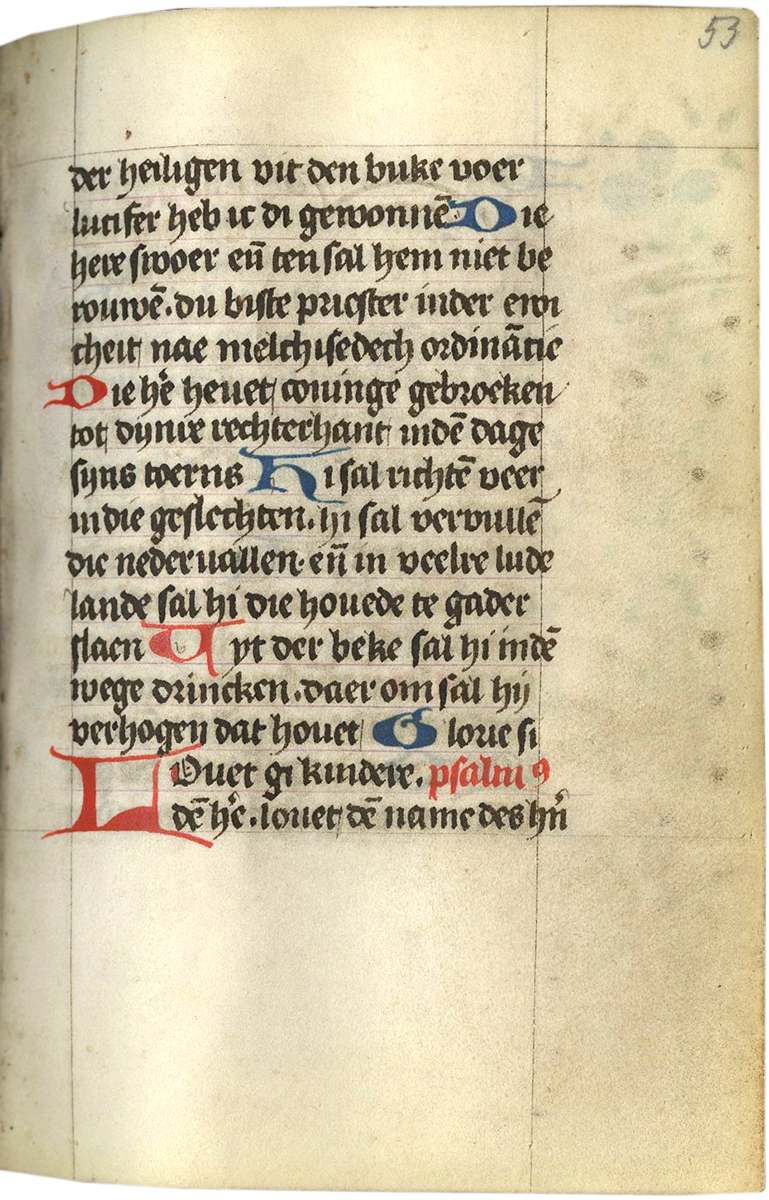 53
der heiligen vit den buke voer
lucifer heb ic di gewonnē Die
here swoer eñ ten sal hem niet be
rouwē. du biste priester inder ewi
cheit nae melchisedech ordinācie
Die hẽ heuet coninge gebroeken
tot dynre rechterhant indē dage
syns toerns Hi sal richtē veer
indie geslechten. hi sal vervullē
die nederuallen. eñ in veelre lude
lande sal hi die houede te gader
slaen Uyt der beke sal hi indē
wege drincken. daer om sal hij
verhogen dat houet Glorie si
LOuet gi kindere. psalmꝰ
dē hẽ. louet dē name des hñ